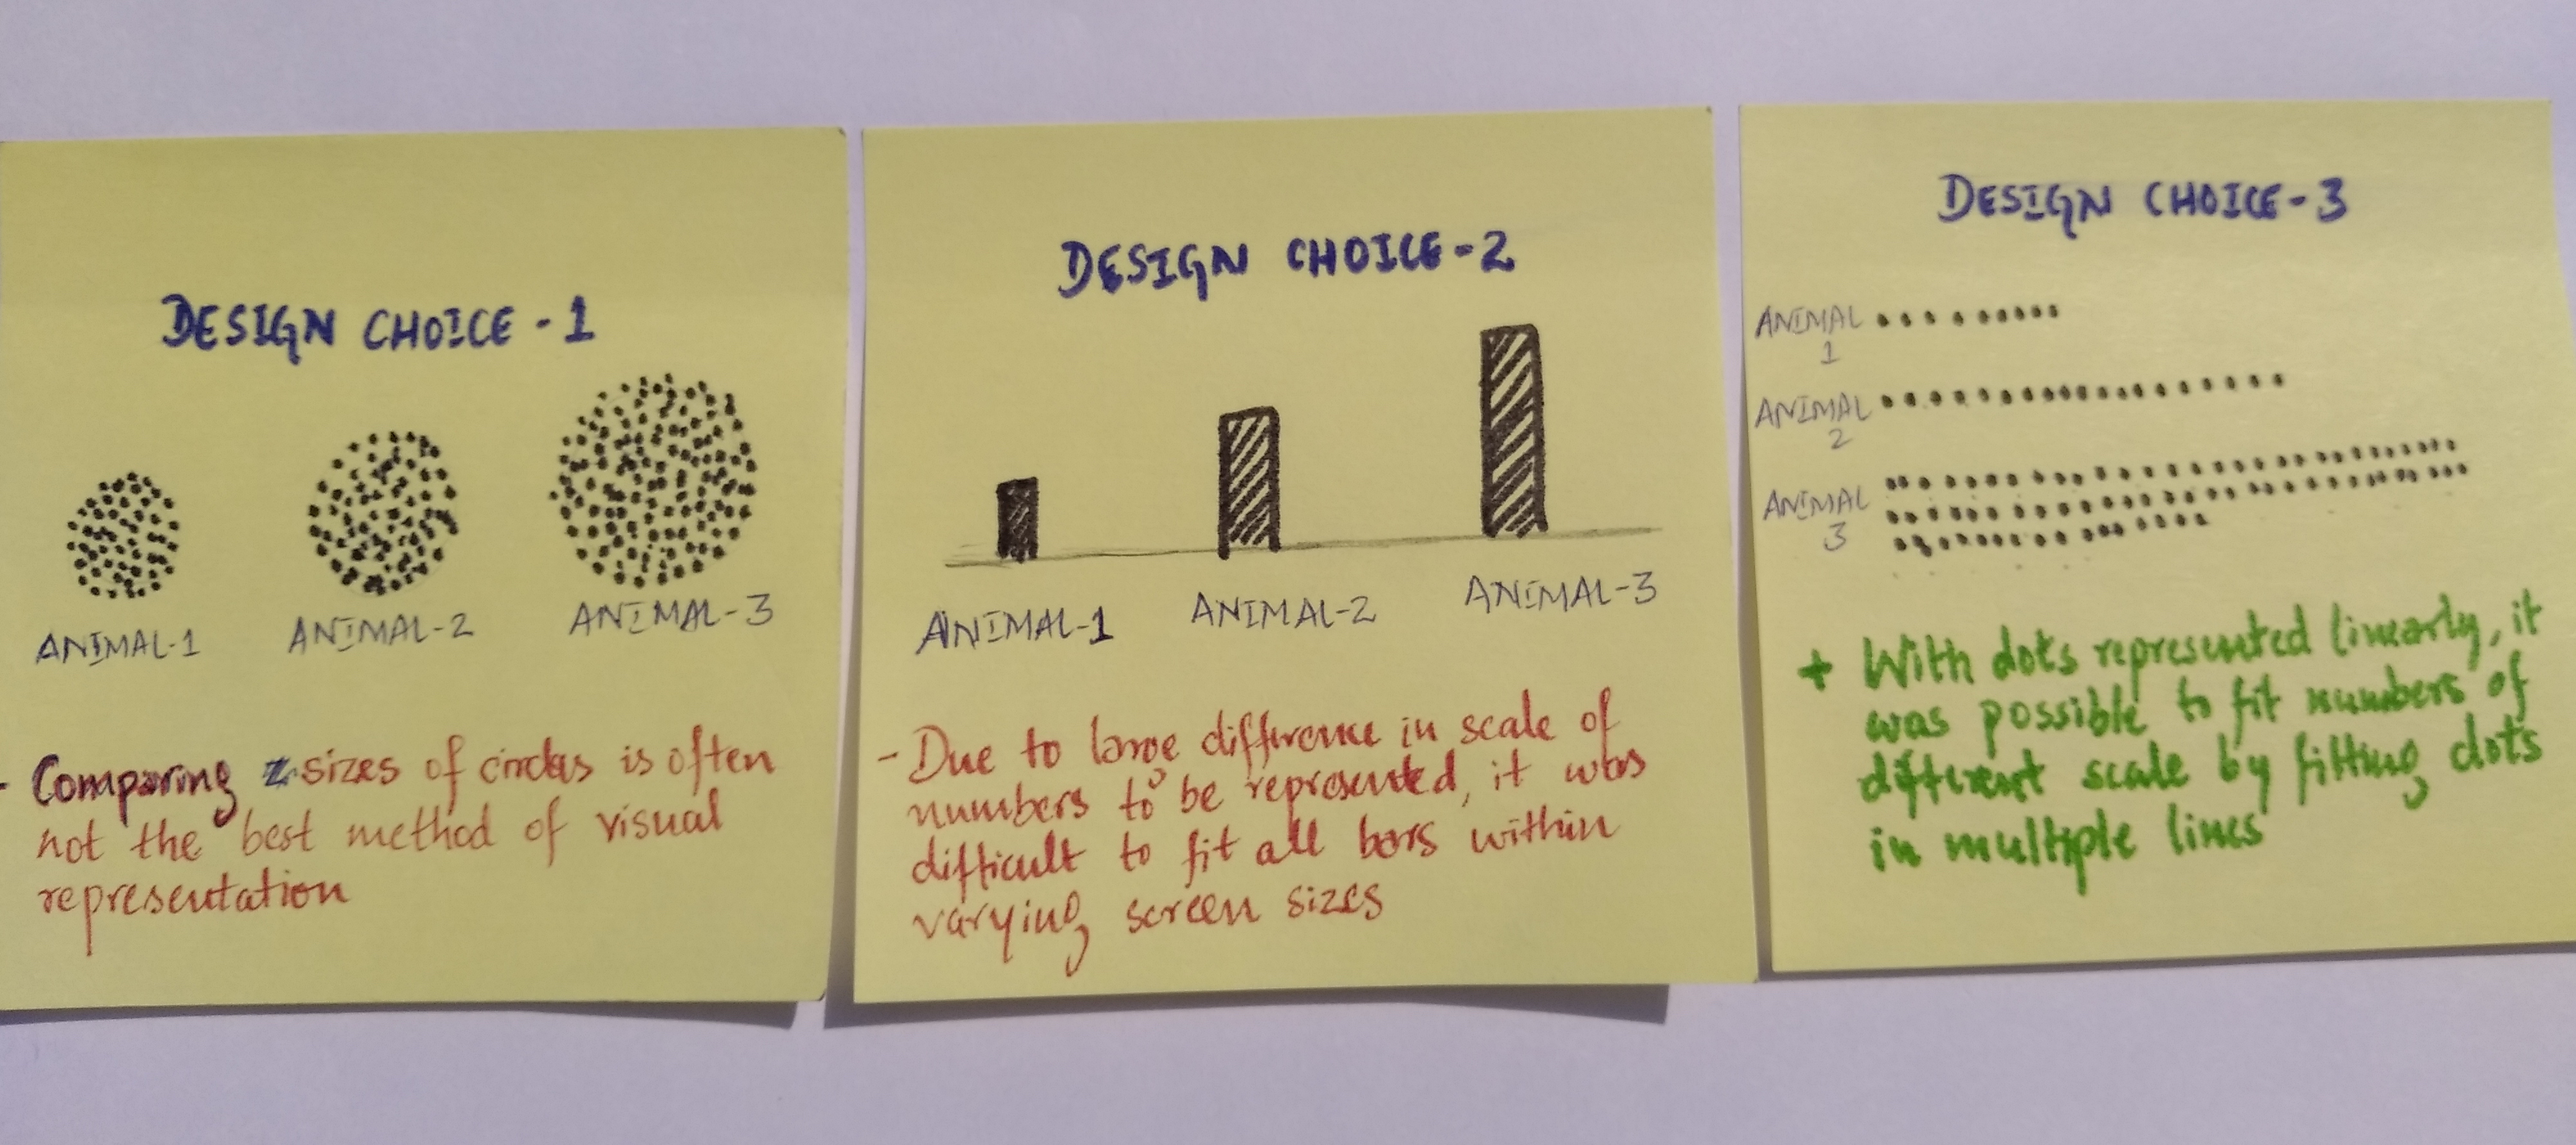 DESIGN CHOICE - 1
ANIMAL-1
ANIMAL-2
ANIMAL-3
- Comparing sizes of circles is often
not the best method of visual
representation
DESIGN CHOICE-2
ANIMAL-1
ANIMAL-2
ANIMAL-3
- Due to large difference in scale of
numbers to be represented, it was
difficult to fit all bars within
varying screen sizes
DESIGN CHOICE-3
ANIMAL
1
ANIMAL
2
ANIMAL
3
+ With dots represented linearly, it
was possible to fit numbers of
different scale by fitting dots
in multiple lines